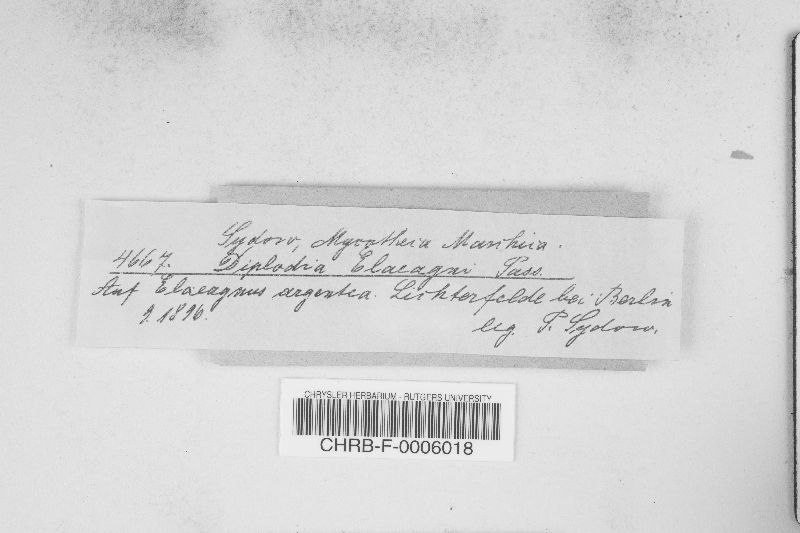 Sydow, Mycotheca Marchica.
4667. Diplodia Elaeagni Pass.
Auf Elaeagnus argentea. Lichterfelde bei Berlin
9. 1896.
leg. P. Sydow.
CHRYSLER HERBARIUM - RUTGERS UNIVERSITY
CHRB-F-0006018